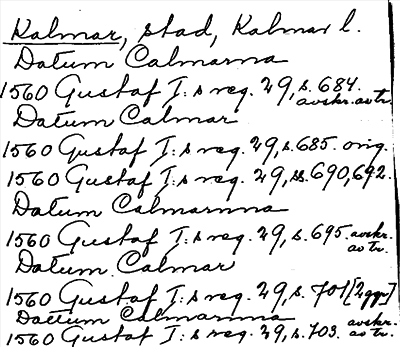 Kalmar, stad, Kalmar l.
Datum Calmarna
1560 Gustaf I:s reg. 29, s. 684. avskr. av tr.
Datum Calmar
1560 Gustaf I:s reg. 29, s. 685. orig.
1560 Gustaf I:s reg. 29, ss. 690, 692.
Datum Calmarnna
1560 Gustaf I:s reg. 29, s. 695. avskr. av tr.
Datum Calmar
1560 Gustaf I:s reg. 29, s. 701 [2 ggr]
Dattum Calmarnna
1560 Gustaf I:s reg. 29, s. 703. avskr. av tr.